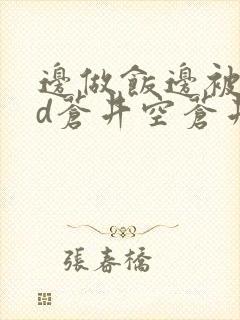 邊做飯邊被
d蒼井空蒼井
張春橋